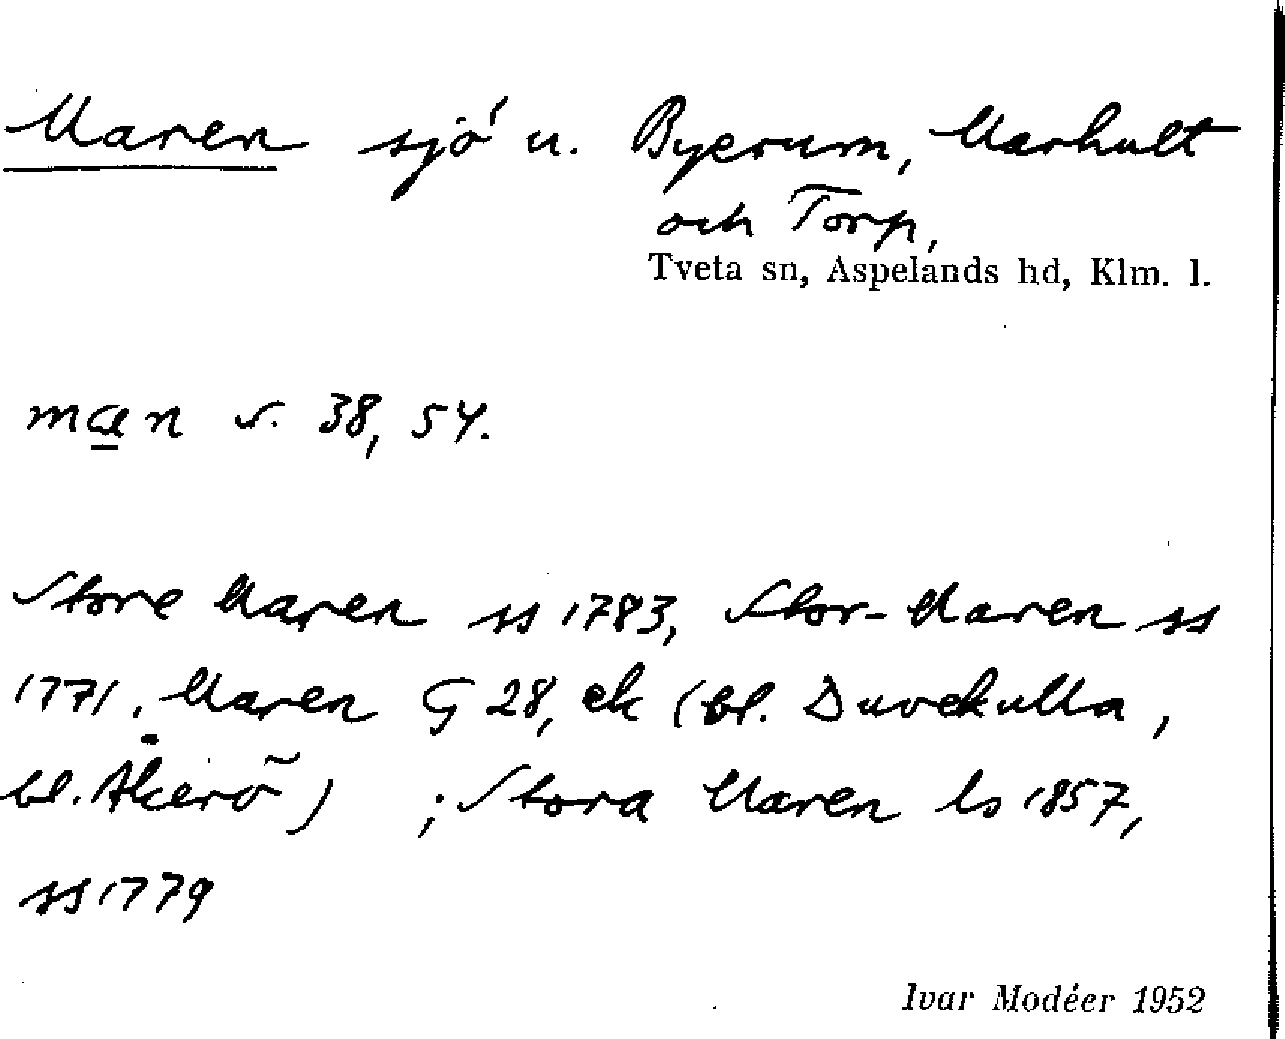 Maren sjö u. Byerum, Marhult
och Torp,
Tveta sn, Aspelands hd, Klm. l.
mạn s. 38, 54.
Store Maren ss 1783, Stor-Maren ss
1771, Maren G 28, ek (bl. Duvekulla,
bl. Åkerö) ; Stora Maren ls 1857,
ss 1779
Ivar Modéer 1952